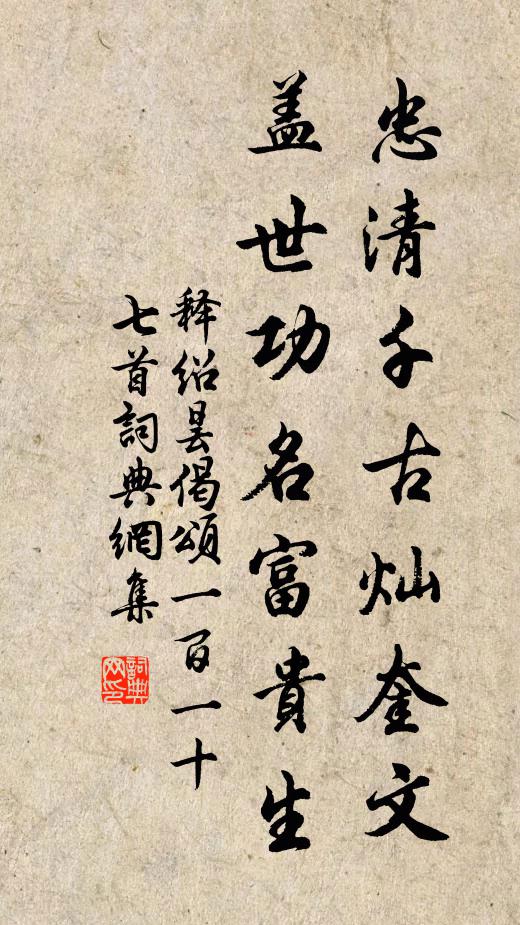 忠清千古灿奎文
盖世功名富貴生
释绍昙偈頌一百一十
七首詞典網集
詞典网印